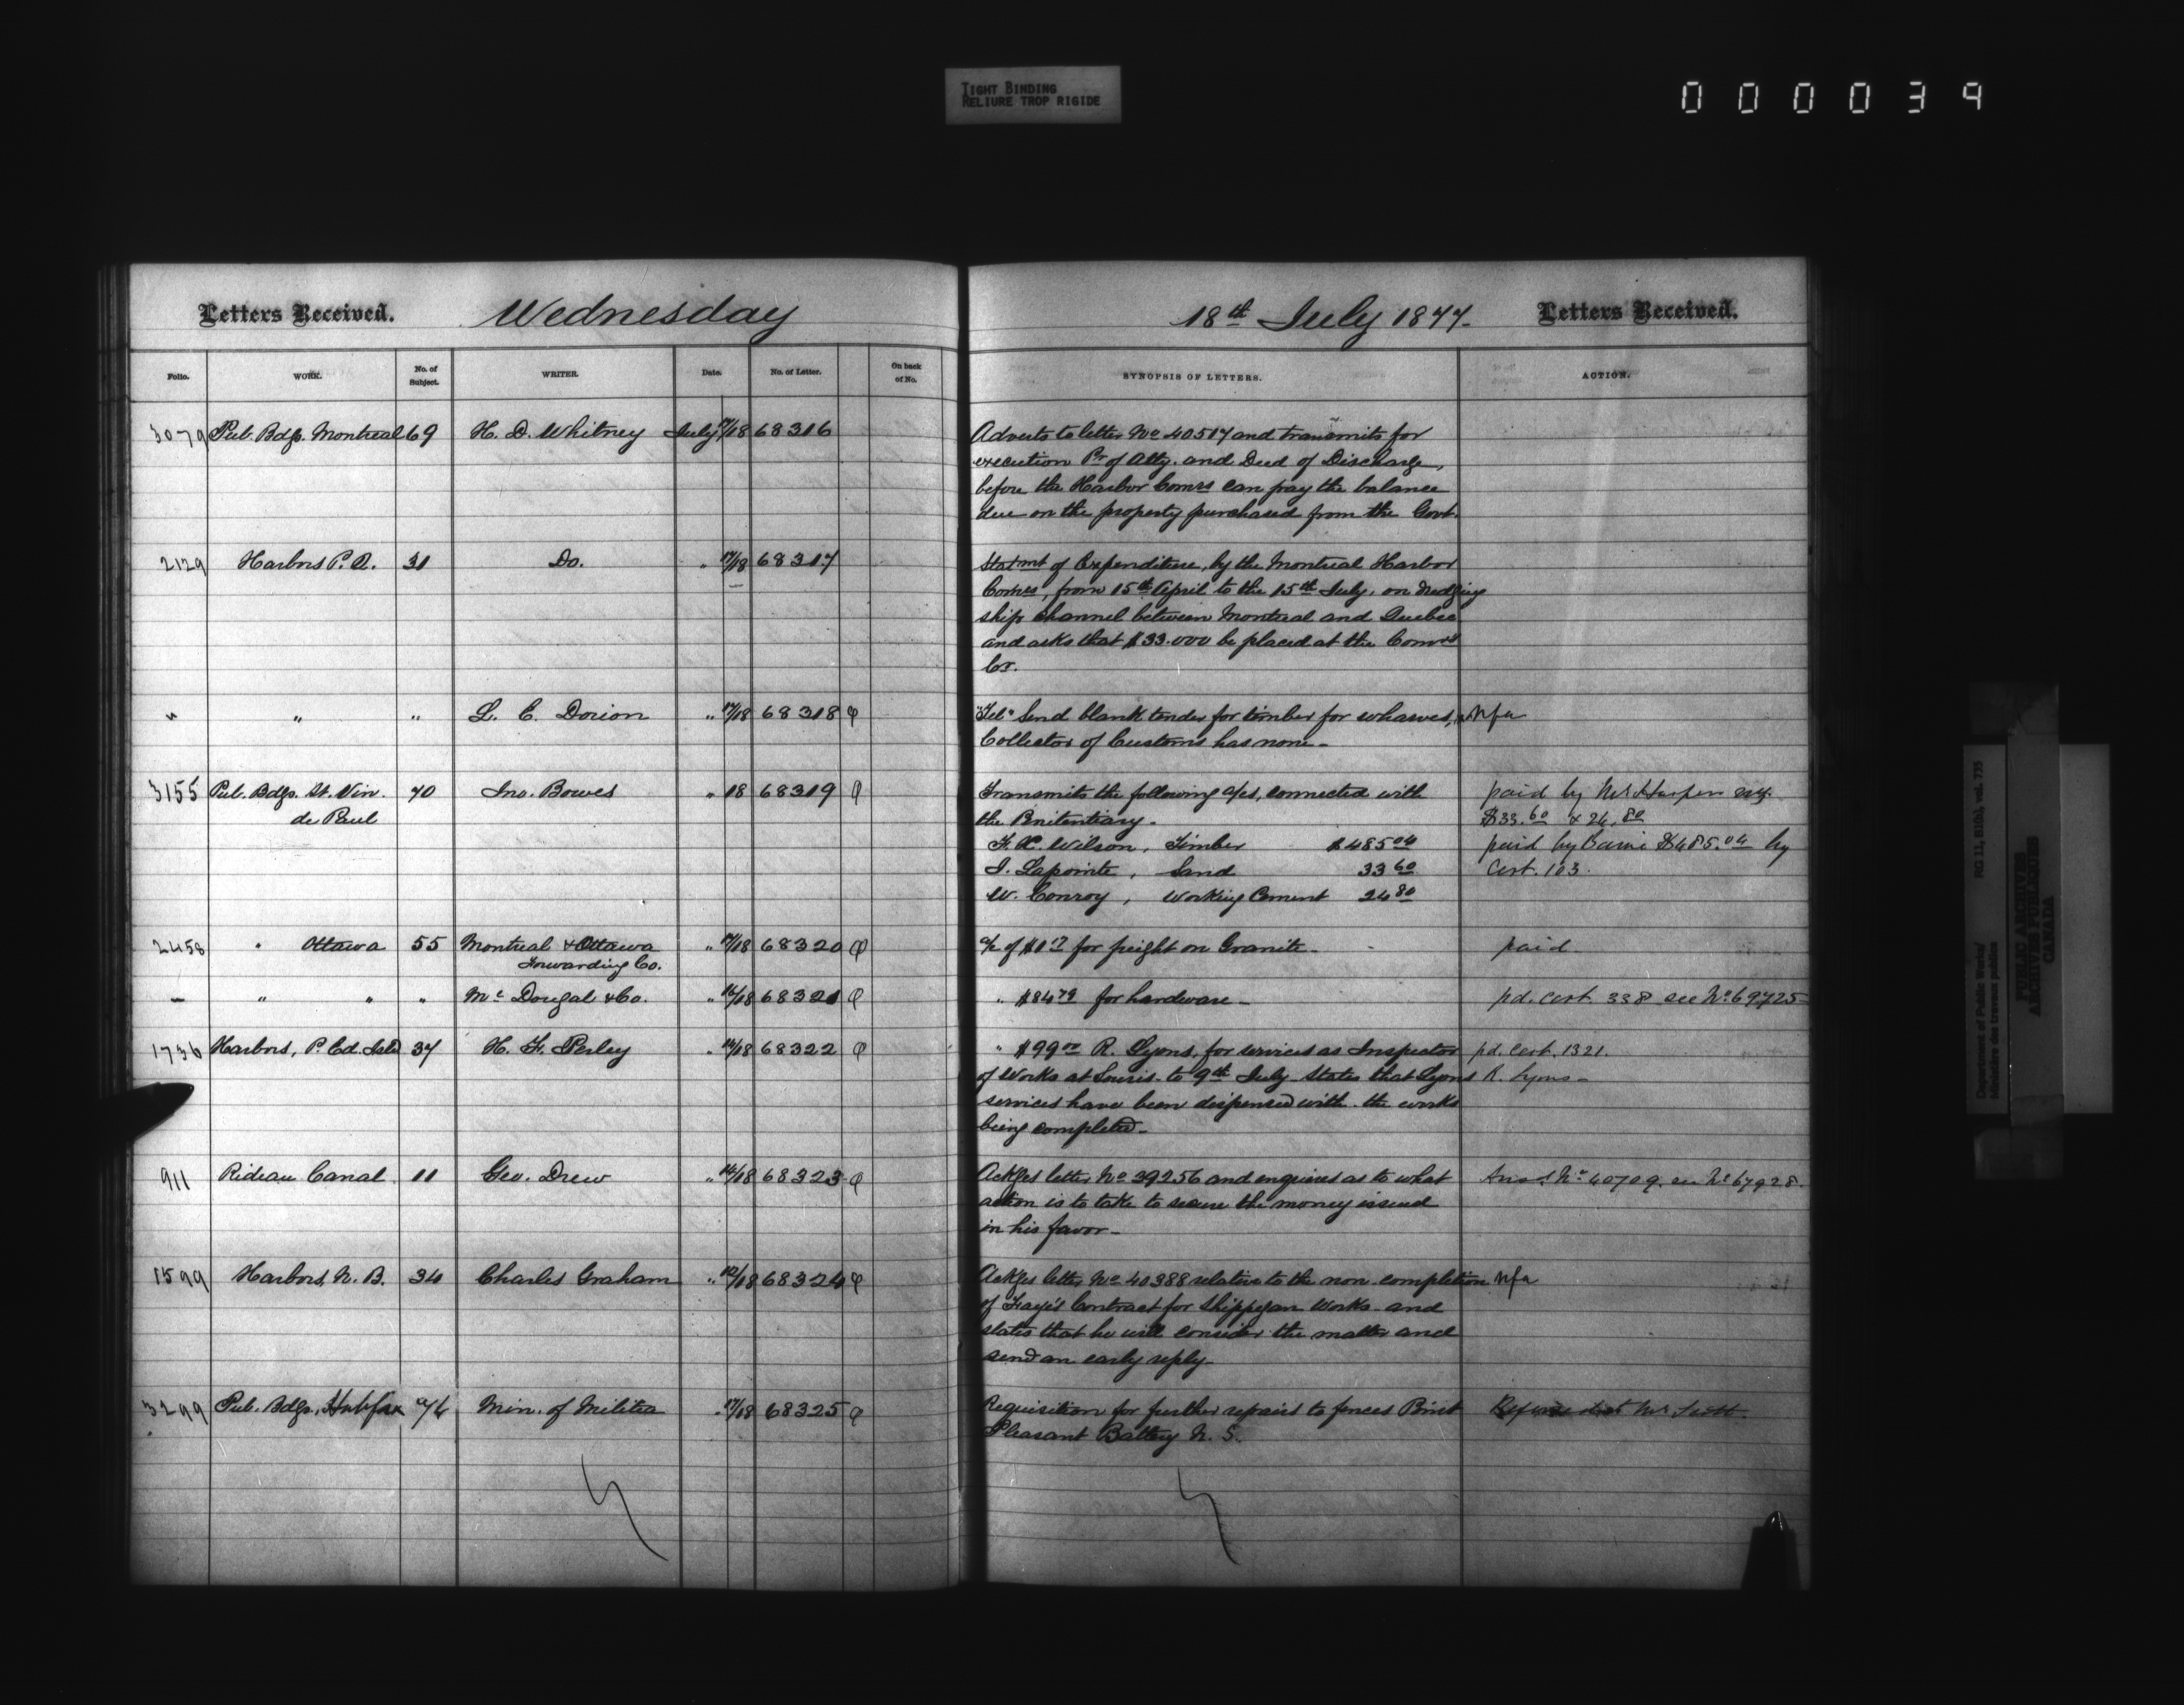 TIGHT BINDING
RELIURE TROP RIGIDE
000039
Letters Received. Wednesday
18th July 1877. Letters Received.
Folio. WORK. No. of Subject. WRITER. Date. No. of Letter. On back of No. SYNOPSIS OF LETTERS. ACTION.
3079 Pub. Bdgs. Montreal 69 H. D. Whitney July 17/18 68316 Adverts to letter No 40517 and transmits for
execution Pr of Atty. and Deed of Discharge,
before the Harbor Comrs can pay the balance
due on the property purchased from the Govt.
2129 Harbors P. Q. 31 Do. " 17/18 68317 Statmt of Expenditure, by the Montreal Harbor
Comrs, from 15th April to the 15th July, on dredging
ship channel between Montreal and Quebec
and asks that $33.000 be placed at the Comrs
Cr.
" " " L. E. Dorion " 17/18 68318 φ "Tel" Send blank tender for timber for wharves, Nfa
Collector of Customs has none -
3155 Pub. Bdgs. St. Vin. 70 Jno. Bowes " 18 68319 φ Transmits the following a/cs, connected with paid by Mr Harper
de Paul the Penitentiary - $33.60 & 24.80
F. X. Wilson, Timber $485 04 paid by $485.04 by
I. Lapointe, Sand 33 60 Cert. 103.
W. Conroy, Working Cement 24 80
2458 " Ottawa 55 Montreal & Ottawa " 17/18 68320 φ a/c of for freight on Granite - paid
Forwarding Co.
— " " " Mc Dougal & Co. " 16/18 68321 φ " $84 79 for hardware - pd. Cert. 338 see No 69725
1736 Harbors, P. Ed. Isld 37 H. F. Perley " 14/18 68322 φ " $99 00 R. Lyons, for services as Inspector pd. Cert. 1321.
of Works at Souris - to 9th July. States that Lyons R. Lyons -
services have been dispensed with - the works
being completed -
911 Rideau Canal 11 Geo. Drew " 14/18 68323 φ Ackges letter No 39256 and enquires as to what Ansd No 40709. see No 67928.
action is to take to secure the money issued
in his favor -
1599 Harbors, N. B. 34 Charles Graham " 12/18 68324 φ Ackges letter No 40388 relative to the non-completion Nfa
of Contract for Shippegan Works - and
states that he will consider the matter and
send an early reply -
3299 Pub. Bdgs. Halifax 76 Min. of Militia " 17/18 68325 φ Requisition for further repairs to fences Point Mr Scott.
Pleasant Battery N. S.
Department of Public Works/
Ministère des travaux publics
RG 11, B1(b), vol. 735
PUBLIC ARCHIVES
ARCHIVES PUBLIQUES
CANADA